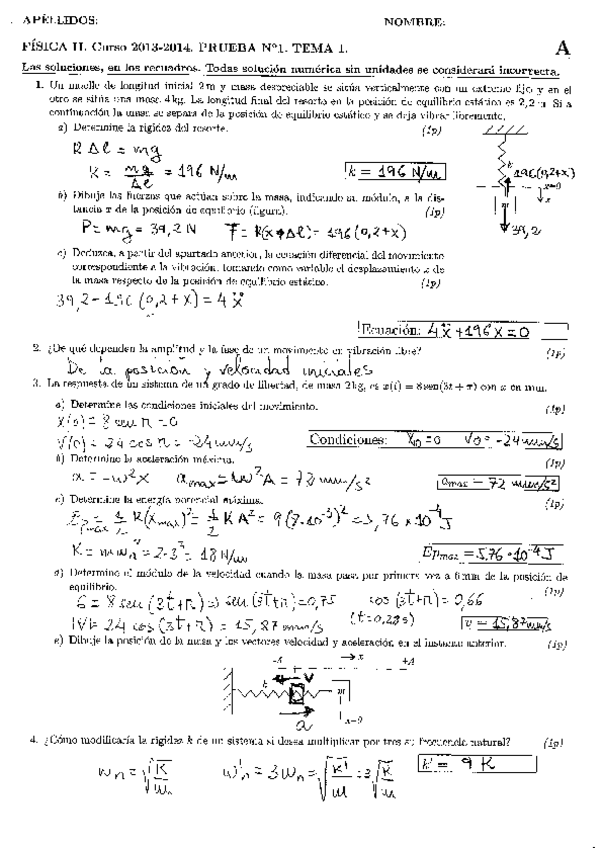 APELLIDOS: NOMBRE:
FÍSICA II. Curso 2013-2014. PRUEBA Nº1. TEMA 1. A
Las soluciones, en los recuadros. Todas solución numérica sin unidades se considerará incorrecta.
1. Un muelle de longitud inicial 2 m y masa despreciable se sitúa verticalmente con un extremo fijo y en el
otro se sitúa una masa 4 kg. La longitud final del resorte en la posición de equilibrio estático es 2,2 m. Si a
continuación la masa se separa de la posición de equilibrio estático y se deja vibrar libremente,
a) Determine la rigidez del resorte. (1p)
K Δl = mg
K = mg/Δl = 196 N/m
k = 196 N/m
k 196(0,2+x)
x=0
x
m
39,2
b) Dibuje las fuerzas que actúan sobre la masa, indicando su módulo, a la dis-
tancia x de la posición de equilibrio (figura). (1p)
P = mg = 39,2 N F = K(x+Δl) = 196(0,2+x)
c) Deduzca, a partir del apartado anterior, la ecuación diferencial del movimiento
correspondiente a la vibración, tomando como variable el desplazamiento x de
la masa respecto de la posición de equilibrio estático. (1p)
39,2 - 196(0,2+x) = 4ẍ
Ecuación: 4ẍ + 196x = 0
2. ¿De qué dependen la amplitud y la fase de un movimiento en vibración libre? (1p)
De la posición y velocidad iniciales
3. La respuesta de un sistema de un grado de libertad, de masa 2 kg, es x(t) = 8 sen(3t + π) con x en mm.
a) Determine las condiciones iniciales del movimiento. (1p)
x(0) = 8 sen π = 0
v(0) = 24 cos π = -24 mm/s
Condiciones: x₀=0 v₀=-24 mm/s
b) Determine la aceleración máxima. (1p)
a = -ω²x amax = ω²A = 72 mm/s²
amax = 72 mm/s²
c) Determine la energía potencial máxima. (1p)
Epmax = 1/2 K(xmax)² = 1/2 K A² = 9(8·10⁻³)² = 5,76×10⁻⁴ J
K = mωn² = 2·3² = 18 N/m
Epmax = 5,76·10⁻⁴ J
d) Determine el módulo de la velocidad cuando la masa pasa por primera vez a 6 mm de la posición de
equilibrio. (1p)
6 = 8 sen(3t+π) ⇒ sen(3t+π) = 0,75 cos(3t+π) = 0,66
|v| = 24 cos(3t+π) = 15,87 mm/s (t=0,28s)
v = 15,87 mm/s
e) Dibuje la posición de la masa y los vectores velocidad y aceleración en el instante anterior. (1p)
-A x +A
k v m
a x=0
4. ¿Cómo modificaría la rigidez k de un sistema si desea multiplicar por tres su frecuencia natural? (1p)
ωn = √(K/m) ω'n = 3ωn = √(K'/m) = 3√(K/m)
k' = 9 K